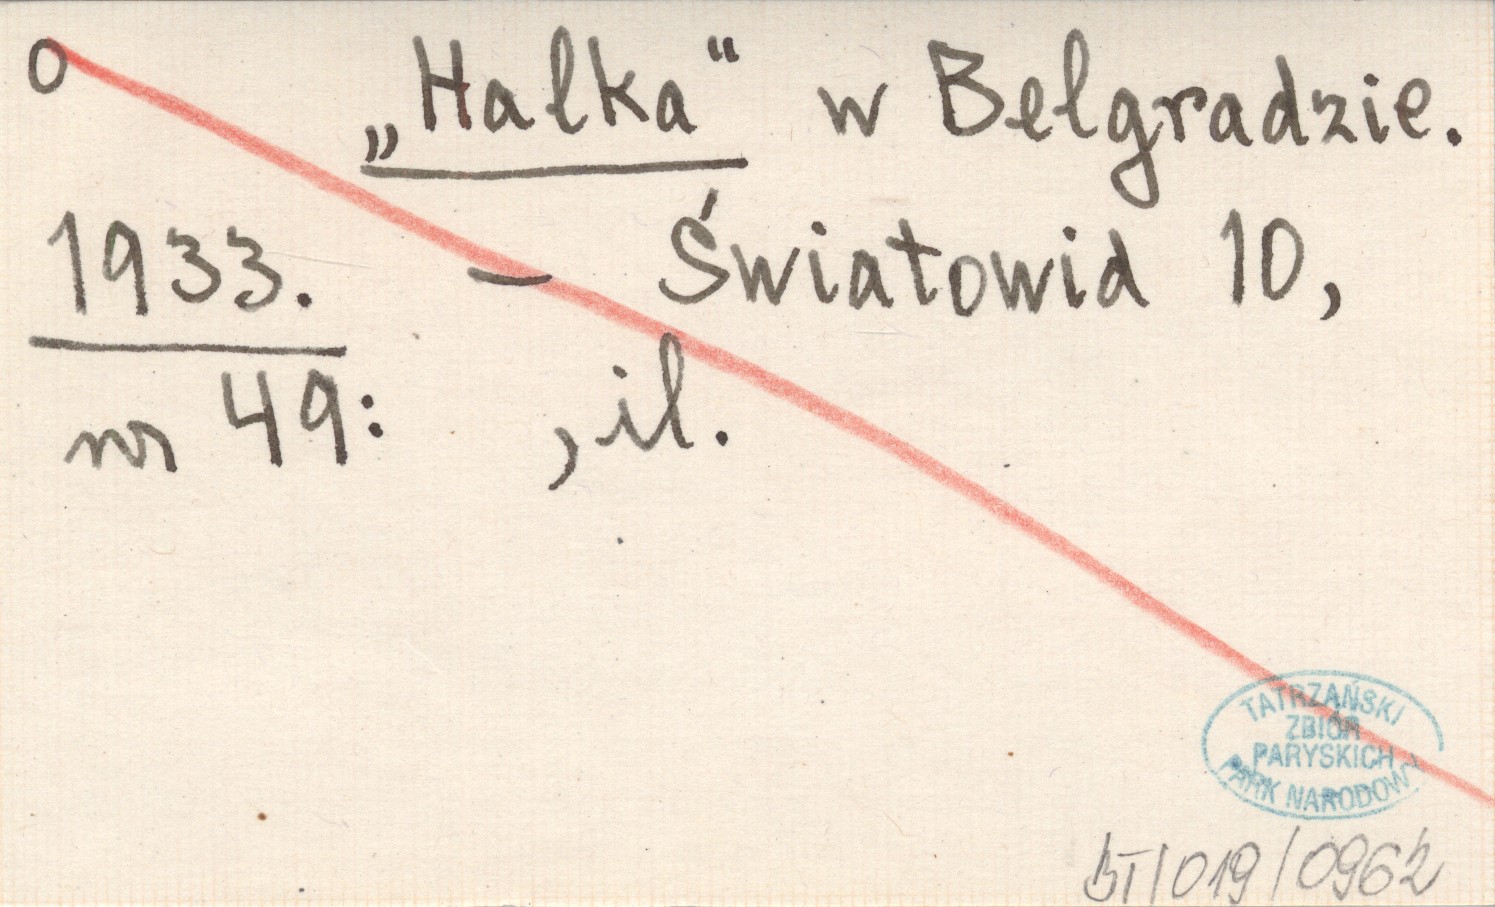 O „Halka“ w Belgradzie.
1933. — Światowid 10,
nr 49: , il.
TATRZAŃSKI
ZBIÓR
PARYSKICH
PARK NARODOWY
BT/019/0962